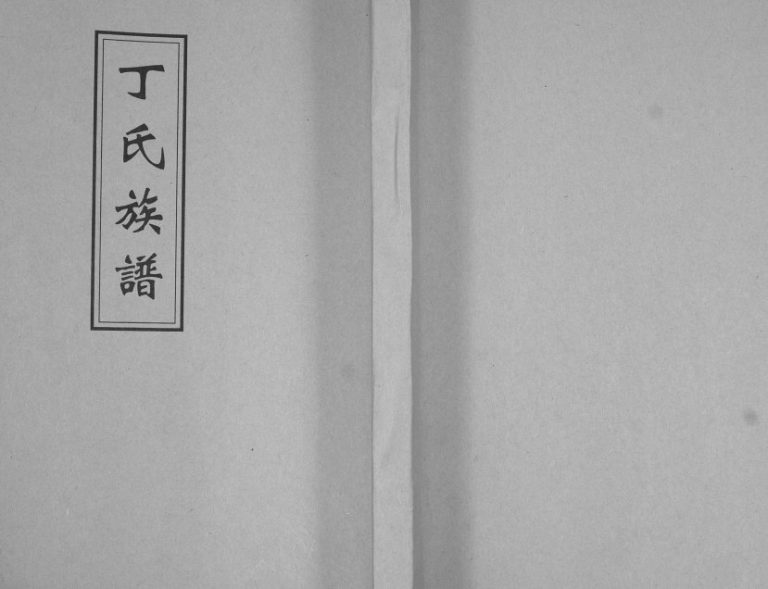 丁氏族譜